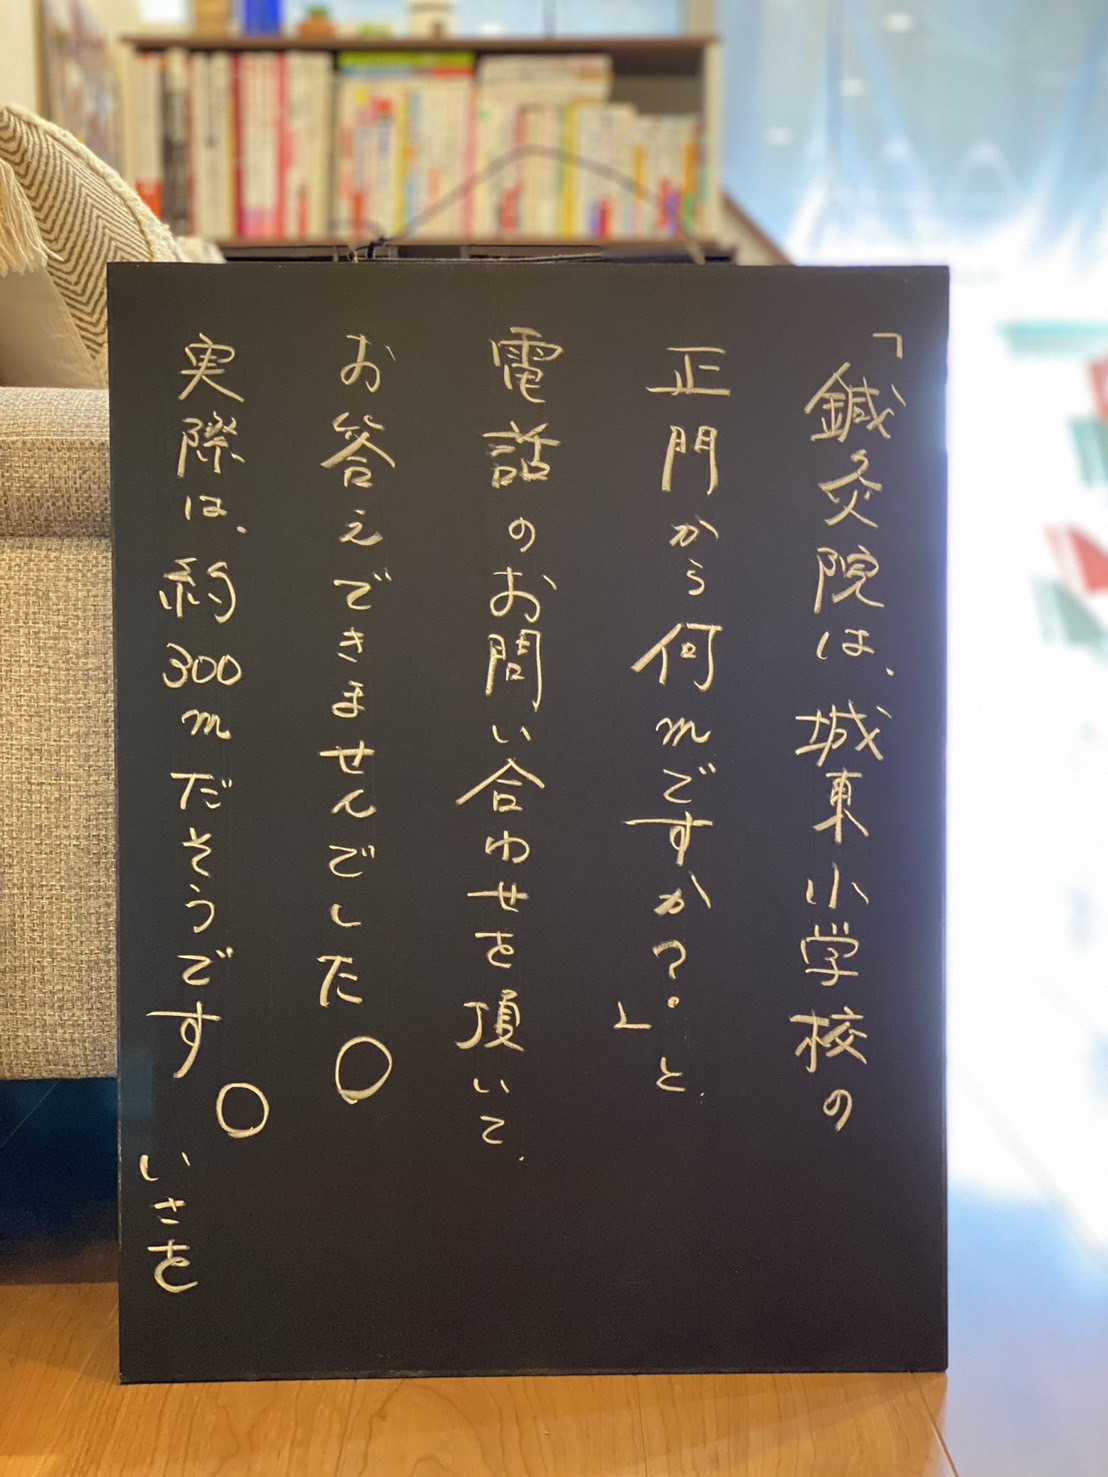 「鍼灸院は、城東小学校の
正門から何mですか？」と、
電話のお問い合わせを頂いて、
お答えできませんでした。
実際は、約300mだそうです。
いさを